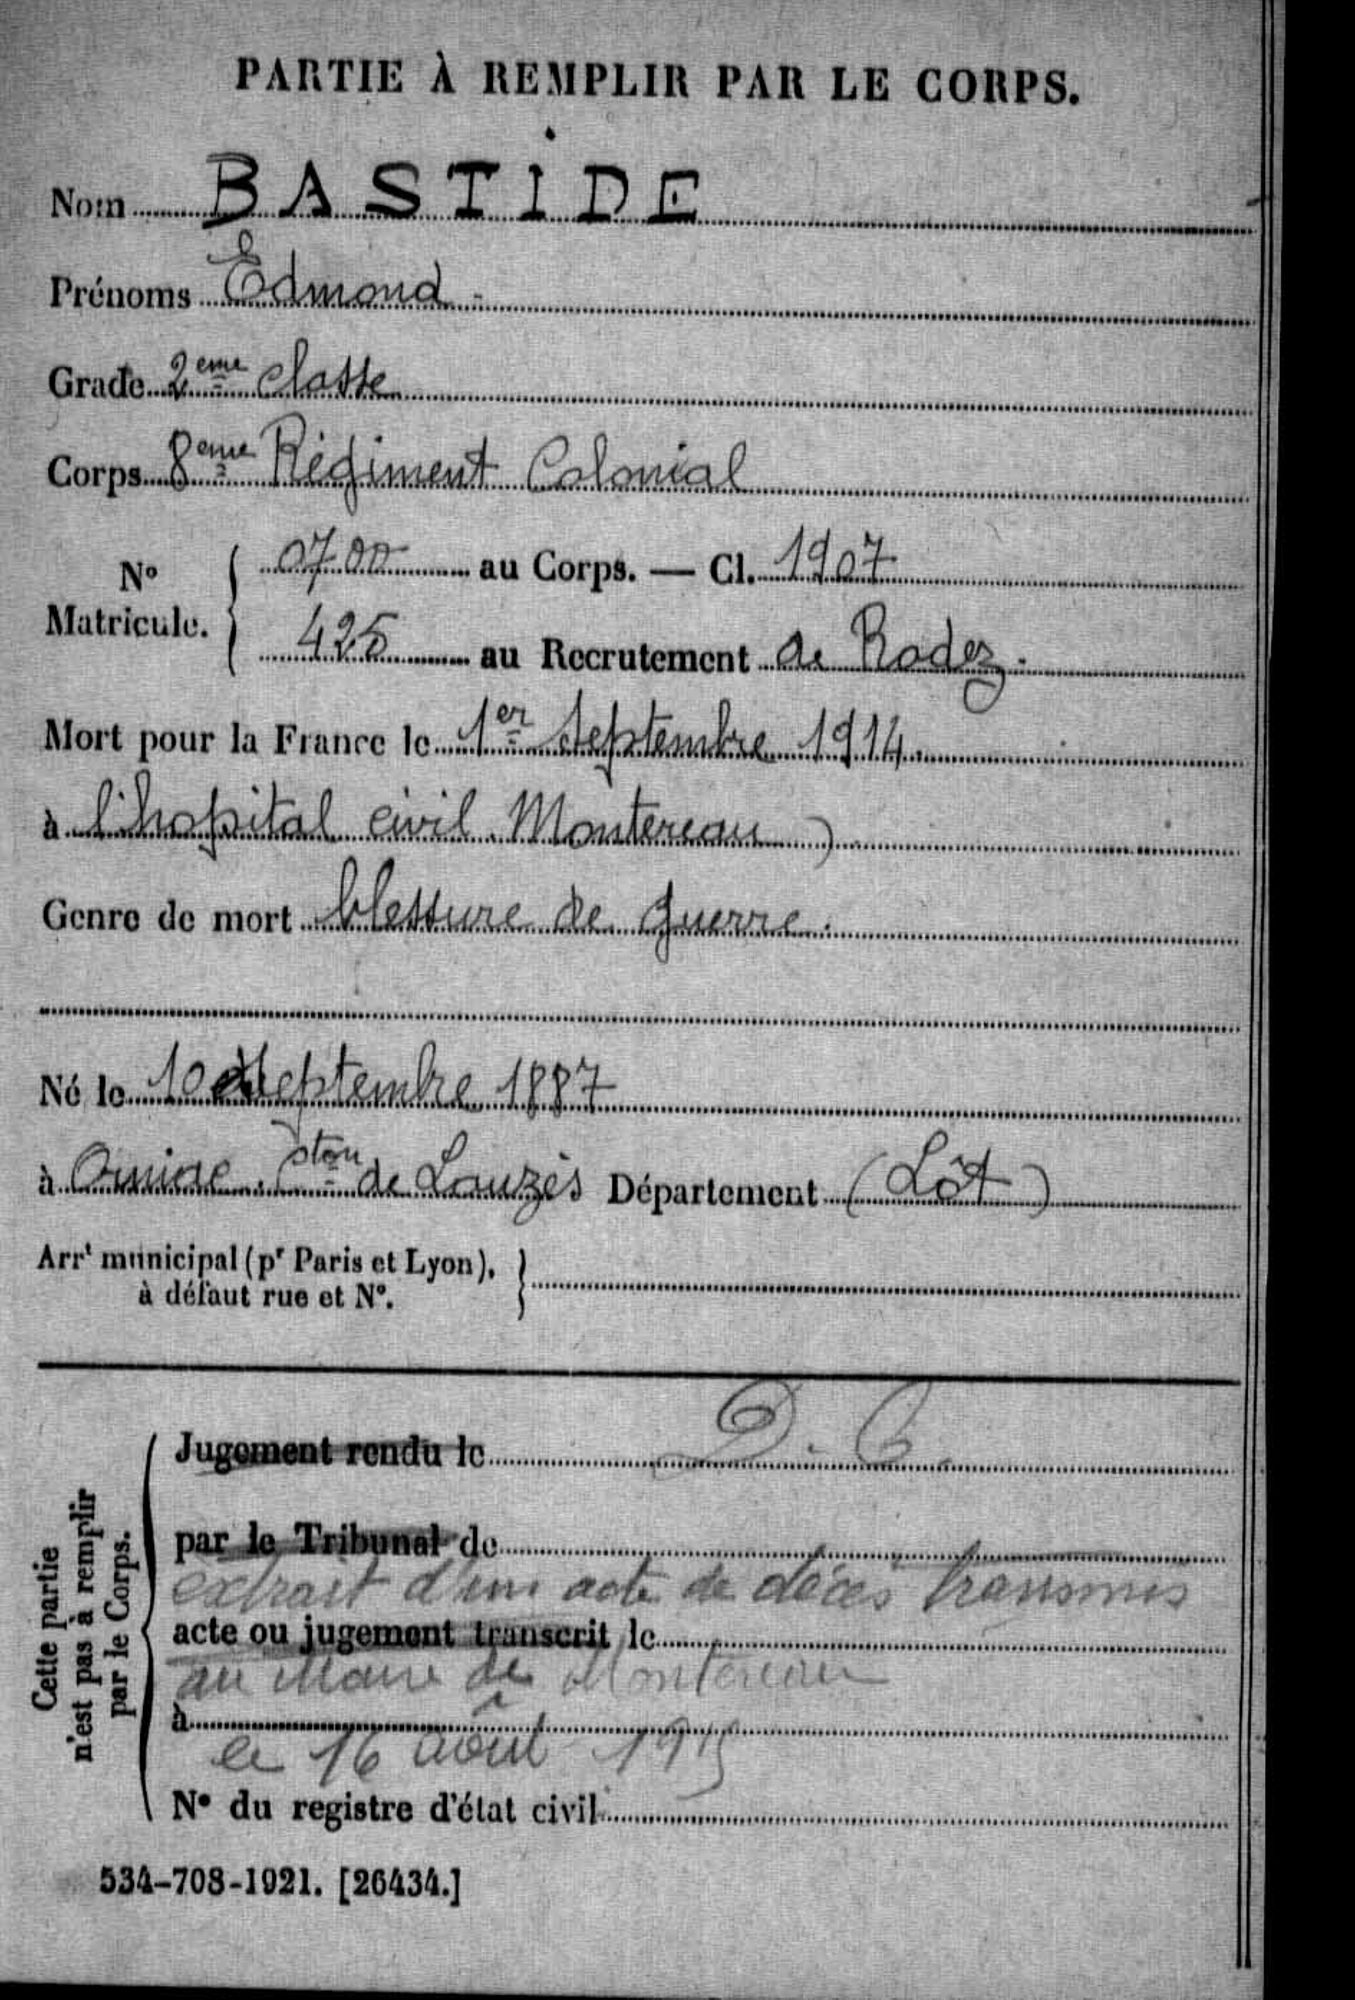 PARTIE À REMPLIR PAR LE CORPS.
Nom BASTIDE
Prénoms Edmond
Grade 2eme classe
Corps 8eme Régiment Colonial
N° Matricule. 0700 au Corps. — Cl. 1907
425 au Recrutement de Rodez.
Mort pour la France le 1er septembre 1914
à l'hopital civil Montereau)
Genre de mort blessure de guerre.
Né le 10 septembre 1887
à Cton de Lauzès Département (Lôt)
Arrt municipal (pr Paris et Lyon),
à défaut rue et N°.
Cette partie
n'est pas à remplir
par le Corps.
Jugement rendu le D. C.
par le Tribunal de
extrait d'un acte de décès transmis
acte ou jugement transcrit le
au Maire de Montereau
à
le 16 août 1915
N° du registre d'état civil
534-708-1921. [26434.]